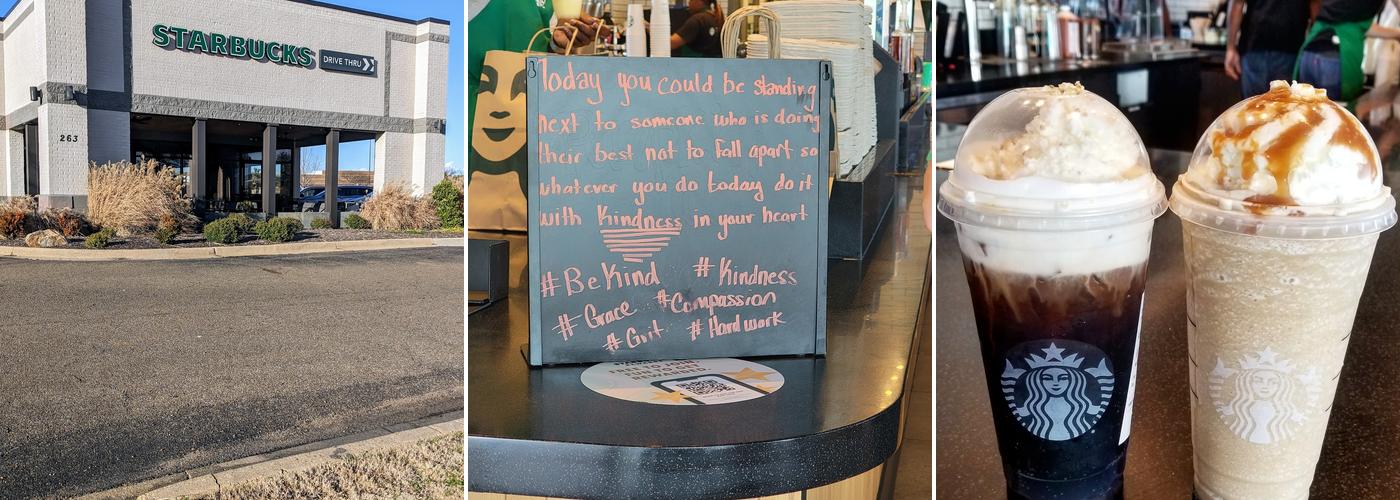 STARBUCKS
DRIVE THRU
263
Today you could be standing
next to someone who is doing
their best not to fall apart so
whatever you do today do it
with kindness in your heart
#BeKind #Kindness
#Grace #Compassion
#Grit #Hardwork